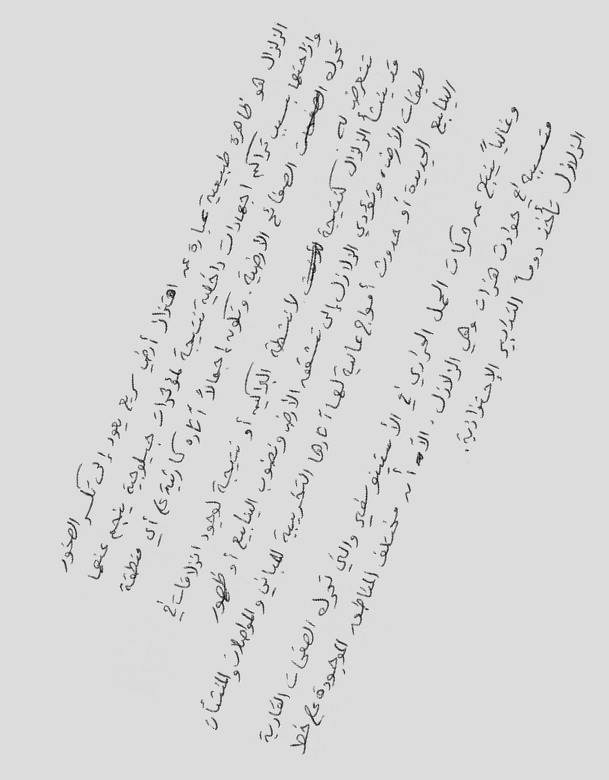 الزلزال هو ظاهرة طبيعية عبارة عن اهتزاز أرضي سريع يعود إلى تكسر الصخور
وإزاحتها بسبب تراكم اجهادات داخلية نتيجة لمؤثرات جيولوجية ينجم عنها
تحرك الصفائح الأرضية. وتكون إجمالاً آثاره كارثية في أي منطقة
تتعرض له.
قد ينشأ الزلزال كنتيجة لأنشطة البراكين أو نتيجة لوجود انزلاقات في
طبقات الأرض، وتؤدي الزلازل إلى تشقق الأرض ونضوب الينابيع أو ظهور
الينابيع الجديدة أو حدوث أمواج عالية لها آثارها التخريبية للمباني والمواصلات والمنشآت
وغالباً ينتج عن حركات الحمل الحراري في الأستينوسفير والتي تحرك الصفحات القارية
متسببة في حوادث هزات وهي الزلازل. الآن أن مختلف المناطق الموجودة على خط
الزلازل تأخذ دوماً التدابير الإحترازية.